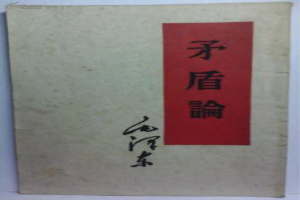 矛盾論
毛泽东